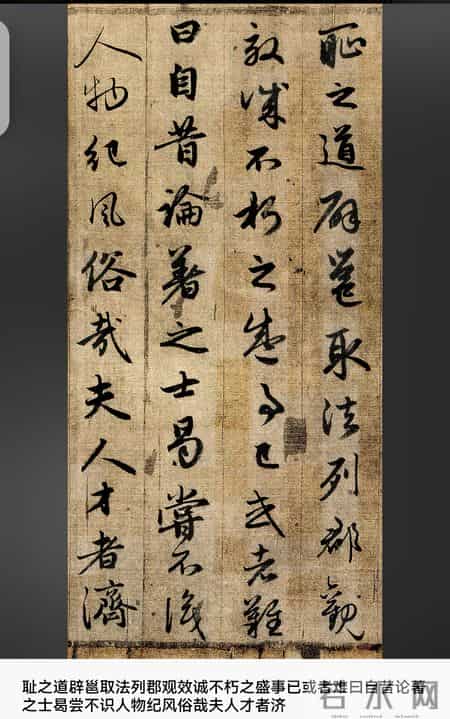 耻之道辟邕取法列郡觀
效誠不朽之盛事已或者難
曰自昔論著之士曷嘗不識
人物紀風俗哉夫人才者濟
耻之道辟邕取法列郡观效诚不朽之盛事已或者难曰自昔论著
之士曷尝不识人物纪风俗哉夫人才者济